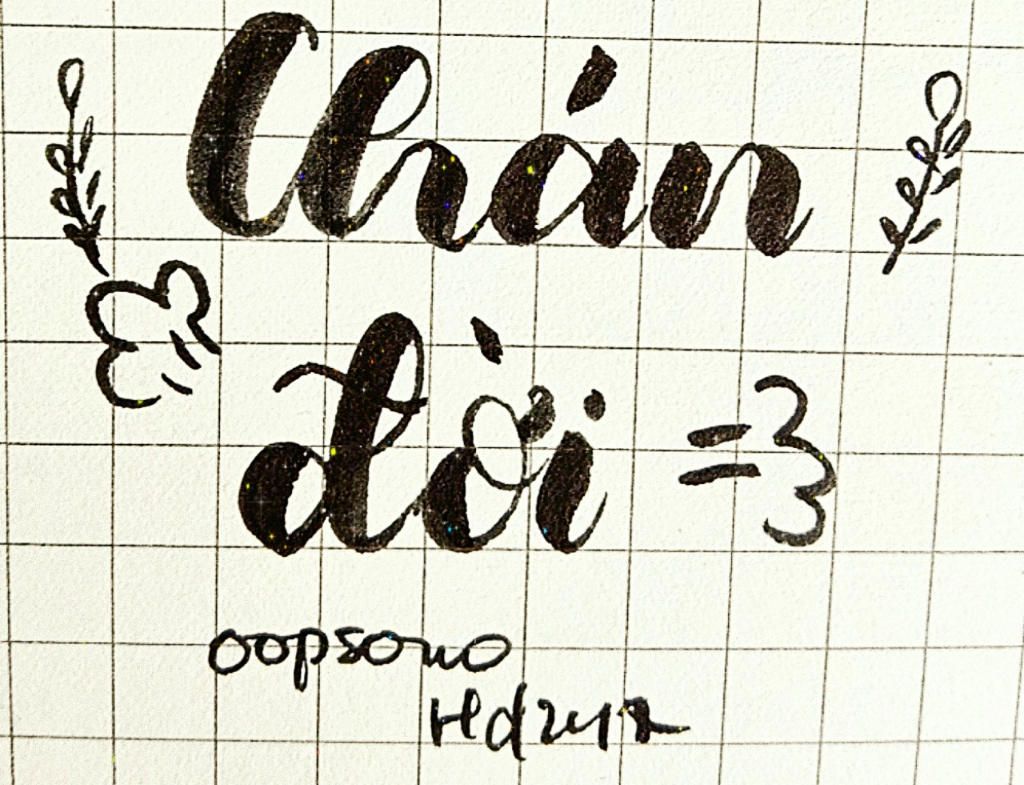 Chán
đời =3
oopsono